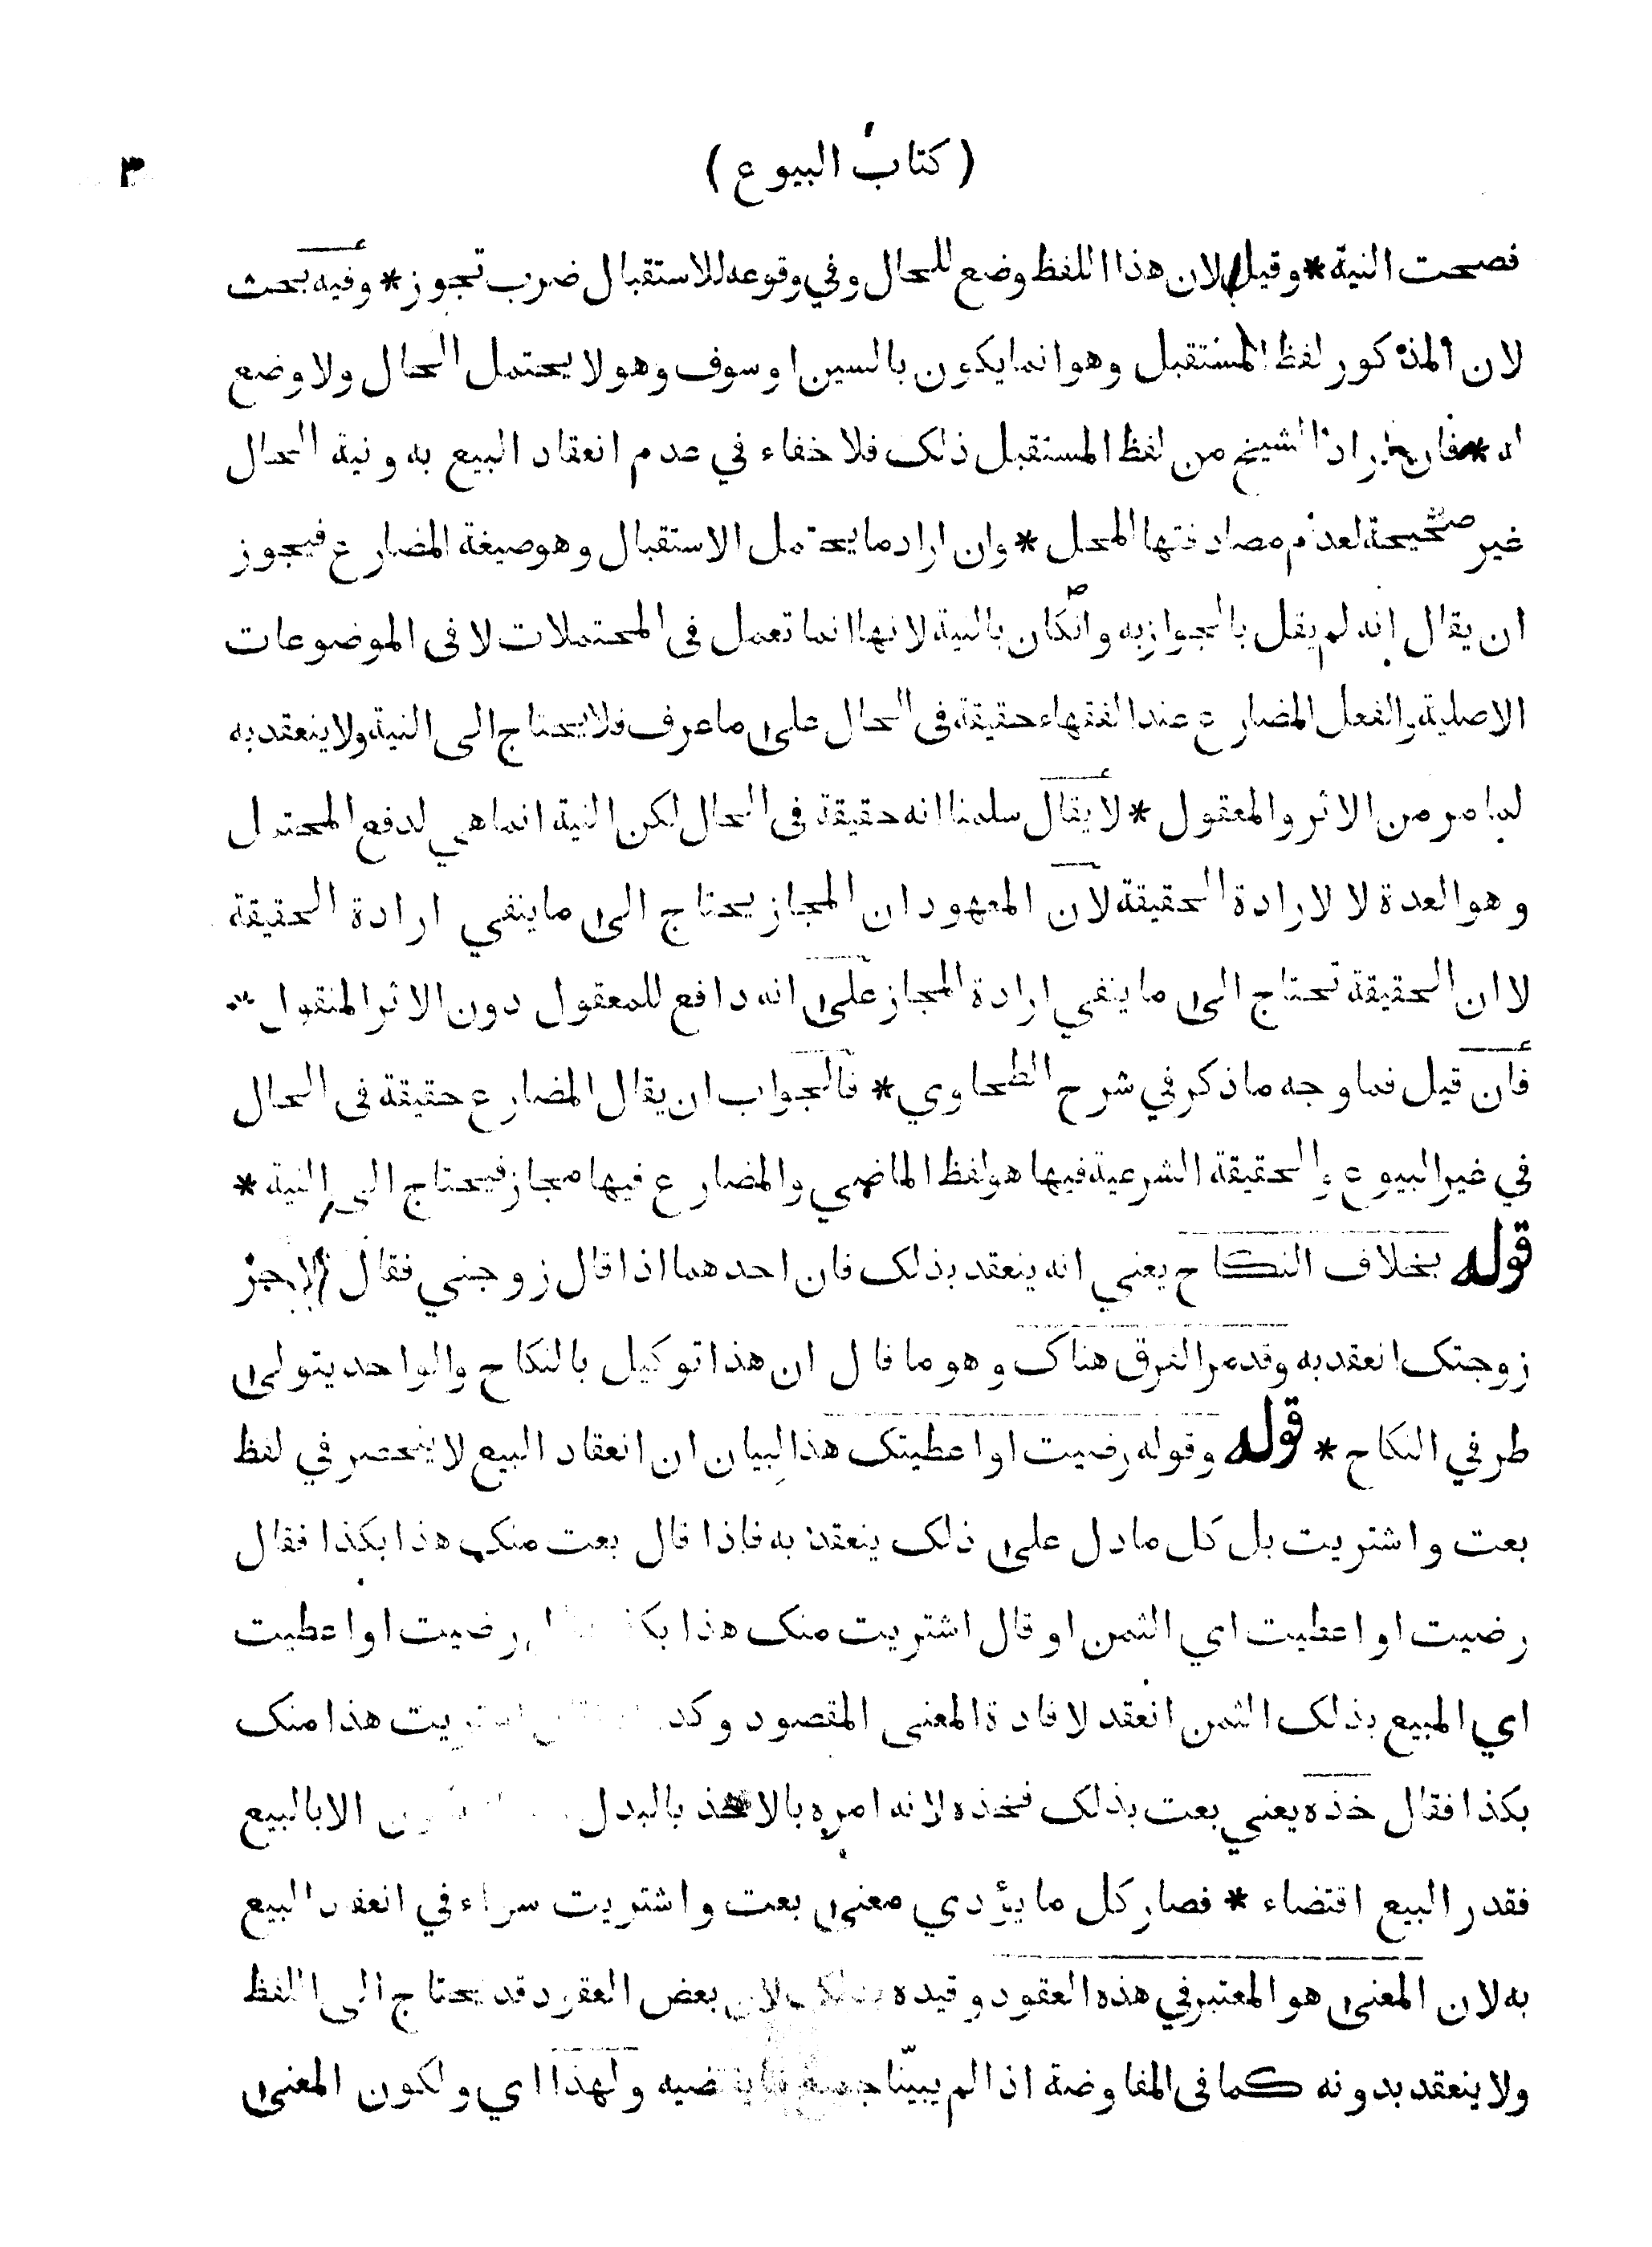 ( كتاب البيوع )
٣
فصحت النية * وقيل لان هذا اللفظ وضع للحال وفي وقوعه للاستقبال ضرب تجوز * وفيه بحث
لان المذكور لفظ المستقبل وهو انما يكون بالسين او سوف وهو لا يحتمل الحال ولا وضع
له * فان اراد الشيخ من لفظ المستقبل ذلك فلا خفاء في عدم انعقاد البيع به ونية الحال
غير صحيحة لعدم مصادفتها المحل * وان اراد ما يحتمل الاستقبال وهو صيغة المضارع فيجوز
ان يقال انه لم يقل بالجواز به وان كان بالنية لانها انما تعمل فى المحتملات لا فى الموضوعات
الاصلية والفعل المضارع عند الفقهاء حقيقة فى الحال على ما عرف فلا يحتاج الى النية ولا ينعقد به
لما مر من الاثر والمعقول * لا يقال سلمنا انه حقيقة فى الحال لكن النية انما هي لدفع المحتمل
وهو العدة لا لارادة الحقيقة لان المعهود ان المجاز يحتاج الى ما ينفي ارادة الحقيقة
لا ان الحقيقة تحتاج الى ما ينفي ارادة المجاز على انه دافع للمعقول دون الاثر المنقول *
فان قيل فما وجه ما ذكر في شرح الطحاوي * فالجواب ان يقال المضارع حقيقة فى الحال
في غير البيوع والحقيقة الشرعية فيها هو لفظ الماضي والمضارع فيها مجاز فيحتاج الى النية *
قوله بخلاف النكاح يعني انه ينعقد بذلك فان احدهما اذا قال زوجني فقال الآخر
زوجتك انعقد به وقد مر الفرق هناك وهو ما قال ان هذا توكيل بالنكاح والواحد يتولى
طرفي النكاح * قوله وقوله رضيت او اعطيتك هذا لبيان ان انعقاد البيع لا ينحصر في لفظ
بعت واشتريت بل كل ما دل على ذلك ينعقد به فاذا قال بعت منك هذا بكذا فقال
رضيت او اعطيت اي الثمن او قال اشتريت منك هذا رضيت او اعطيت
اي المبيع بذلك الثمن انعقد لافادة المعنى المقصود هذا منك
بكذا فقال خذه يعني بعت بذلك فخذه لانه امره بالاخذ بالبدل الا بالبيع
فقدر البيع اقتضاء * فصار كل ما يؤدي معنى بعت واشتريت سواء في انعقاد البيع
به لان المعنى هو المعتبر في هذه العقود وقيده لان بعض العقود قد يحتاج الى اللفظ
ولا ينعقد بدونه كما فى المفاوضة اذا لم يبينا جميع ولهذا اي ولكون المعنى